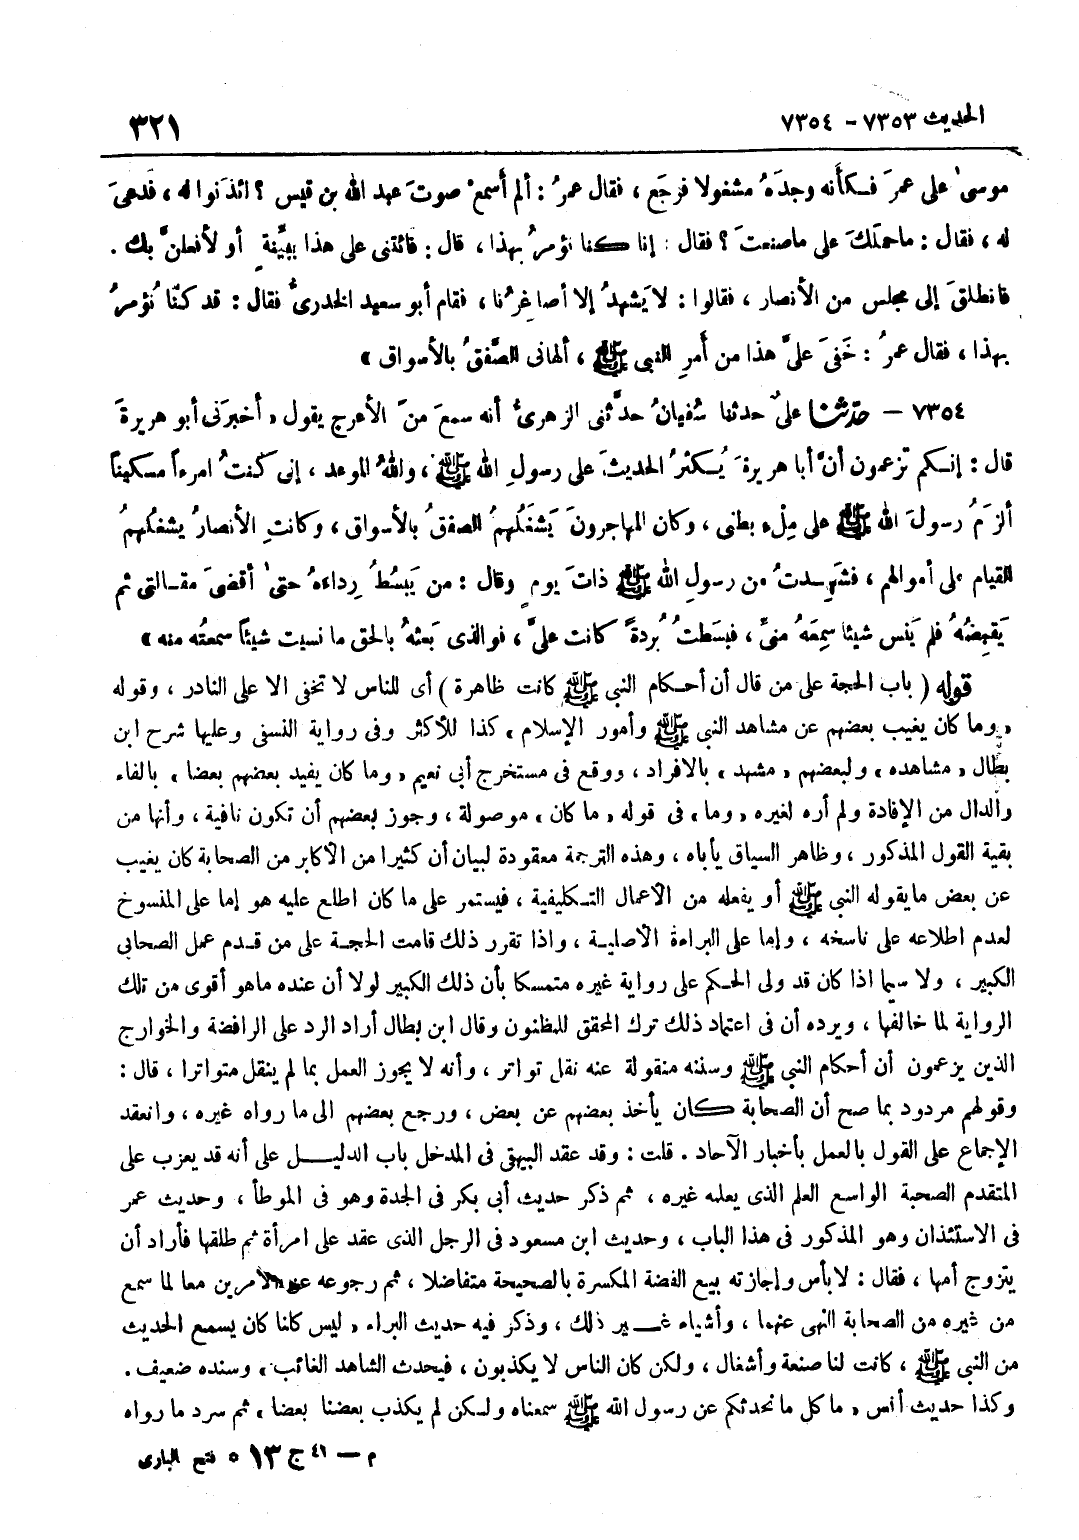 الحديث ٧٣٥٣ - ٧٣٥٤
٣٢١
موسىٰ على عمرَ فكأَنه وجدَهُ مشغولا فرجَع ، فقال عمرُ : ألم أسمعْ صوتَ عبد الله بن قيس ؟ ائذَنوا له ، فدعىَ
له ، فقال : ماحملَكَ على ماصنعتَ ؟ فقال : إنا كنا نؤمرُ بهذا ، قال : فائتنى على هذا ببيِّنةٍ أو لأفعلنَّ بك .
فانطلقَ إلى مجلس من الأنصار ، فقالوا : لا يَشهدُ إلا أصاغرُنا ، فقام أبو سعيد الخدرىُّ فقال : قد كنّا نُؤمرُ
بهذا ، فقال عمرُ : خَفىَ علىَّ هذا من أَمرِ النبى ﷺ ، ألهانى الصَّفقُ بالأسواق »
٧٣٥٤ - حدّثنا علىٌّ حدثنا سُفيانُ حدَّثنى الزهرىُّ أنه سمعَ منَ الأعرج يقول « أخبرَنى أبو هريرةَ
قال : إنكم تزعمون أنَّ أبا هريرةَ يُكثرُ الحديثَ على رسولِ الله ﷺ ، واللهُ الموعد ، إنى كنتُ امرءاً مسكيناً
ألزَمُ رسولَ الله ﷺ على مِلْء بطنى ، وكان المهاجرونَ يَشغَلُهمُ الصفقُ بالأسواق ، وكانتِ الأنصارُ يشغلُهمُ
القيام على أموالهم ، فشهِدتُ من رسولِ الله ﷺ ذاتَ يومٍ وقال : من يَبسُطُ رِداءهُ حتىٰ أقضىَ مقالتى ثم
يَقبِضُهُ فلم يَنس شيئا سمِعَهُ منىِّ ، فبسَطتُ بُردةً كانت علىَّ ، فوالذى بَعثهُ بالحق ما نسيت شيئاً سمعتُه منه »
قوله ( باب الحجة على من قال أن أحكام النبى ﷺ كانت ظاهرة ) أى للناس لا تخفى الا على النادر ، وقوله
« وما كان يغيب بعضهم عن مشاهد النبى ﷺ وأمور الإسلام » كذا للأكثر وفى رواية النسفى وعليها شرح ابن
بطال « مشاهده » ولبعضهم « مشهد » بالافراد ، ووقع فى مستخرج أبى نعيم « وما كان يفيد بعضهم بعضا » بالفاء
والدال من الإفادة ولم أره لغيره « وما » فى قوله « ما كان » موصولة ، وجوز بعضهم أن تكون نافية ، وأنها من
بقية القول المذكور ، وظاهر السياق يأباه ، وهذه الترجمة معقودة لبيان أن كثيرا من الأكابر من الصحابة كان يغيب
عن بعض مايقوله النبى ﷺ أو يفعله من الأعمال التكليفية ، فيستمر على ما كان اطلع عليه هو إما على المنسوخ
لعدم اطلاعه على ناسخه ، وإما على البراءة الأصلية ، واذا تقرر ذلك قامت الحجة على من قدم عمل الصحابى
الكبير ، ولا سيما اذا كان قد ولى الحكم على رواية غيره متمسكا بأن ذلك الكبير لولا أن عنده ماهو أقوى من تلك
الرواية لما خالفها ، ويرده أن فى اعتماد ذلك ترك المحقق للمظنون وقال ابن بطال أراد الرد على الرافضة والخوارج
الذين يزعمون أن أحكام النبى ﷺ وسننه منقولة عنه نقل تواتر ، وأنه لا يجوز العمل بما لم ينقل متواترا ، قال :
وقولهم مردود بما صح أن الصحابة كان يأخذ بعضهم عن بعض ، ورجع بعضهم الى ما رواه غيره ، وانعقد
الإجماع على القول بالعمل بأخبار الآحاد . قلت : وقد عقد البيهقى فى المدخل باب الدليل على أنه قد يعزب على
المتقدم الصحبة الواسع العلم الذى يعلمه غيره ، ثم ذكر حديث أبى بكر فى الجدة وهو فى الموطأ ، وحديث عمر
فى الاستئذان وهو المذكور فى هذا الباب ، وحديث ابن مسعود فى الرجل الذى عقد على امرأة ثم طلقها فأراد أن
يتزوج أمها ، فقال : لابأس وإجازته بيع الفضة المكسرة بالصحيحة متفاضلا ، ثم رجوعه عن الأمرين معا لما سمع
من غيره من الصحابة النهى عنهما ، وأشياء غير ذلك ، وذكر فيه حديث البراء « ليس كلنا كان يسمع الحديث
من النبى ﷺ ، كانت لنا صنعة وأشغال ، ولكن كان الناس لا يكذبون ، فيحدث الشاهد الغائب » وسنده ضعيف .
وكذا حديث أنس « ما كل ما نحدثكم عن رسول الله ﷺ سمعناه ولكن لم يكذب بعضنا بعضا » ثم سرد ما رواه
م - ٤١ ج ١٣ ٥ فتح البارى